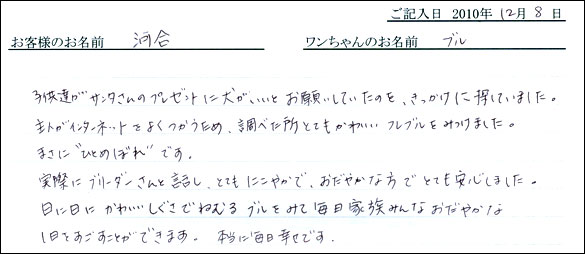 ご記入日 2010年 12月 8 日
お客様のお名前 河合 ワンちゃんのお名前 ブル
子供達がサンタさんのプレゼントに犬がいいとお願いしていたのを、きっかけに探していました。
主人がインターネットをよくつかうため、調べた所とてもかわいいフレブルをみつけました。
まさに"ひとめぼれ"です。
実際にブリーダーさんと話し、とてもにこやかで、おだやかな方でとても安心しました。
日に日にかわいいしぐさでねむるブルをみて毎日家族みんなおだやかな
1日をすごすことができます。本当に毎日幸せです。